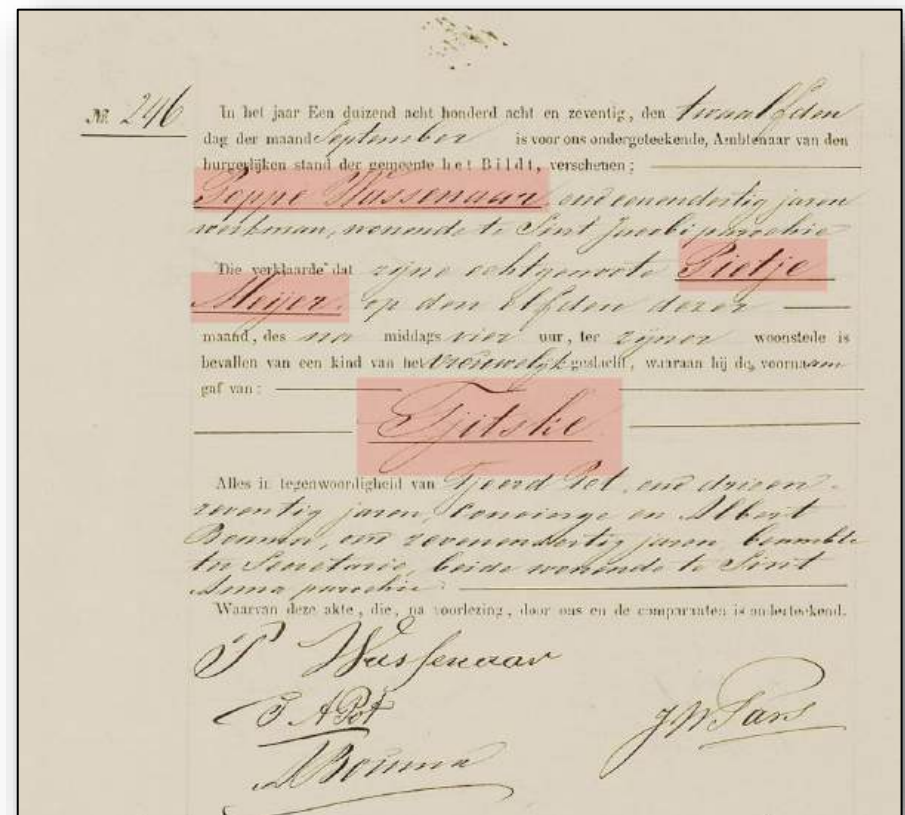 № 246 In het jaar Een duizend acht honderd acht en zeventig, den twaalfden
dag der maand September is voor ons ondergeteekende, Ambtenaar van den
burgerlijken stand der gemeente het Bildt, verschenen;
Poppe Wassenaar, oud eenendertig jaren
werkman, wonende te Sint Jacobi parochie
Die verklaarde dat zijne echtgenoote Pietje
Meijer, op den elfden dezer
maand, des na middags vier uur, ter zijner woonstede is
bevallen van een kind van het vrouwelijk geslacht, waaraan hij de voornaam
gaf van:
Tjitske.
Alles in tegenwoordigheid van Tjeerd Pot, oud drieen-
zeventig jaren, Concierge en Albert
Bouma, oud zevenendertig jaren, beambte
ter Secretarie, beide wonende te Sint
Anna parochie.
Waarvan deze akte, die, na voorlezing, door ons en de comparanten is onderteekend.
P Wassenaar
T A Pot
A Bouma